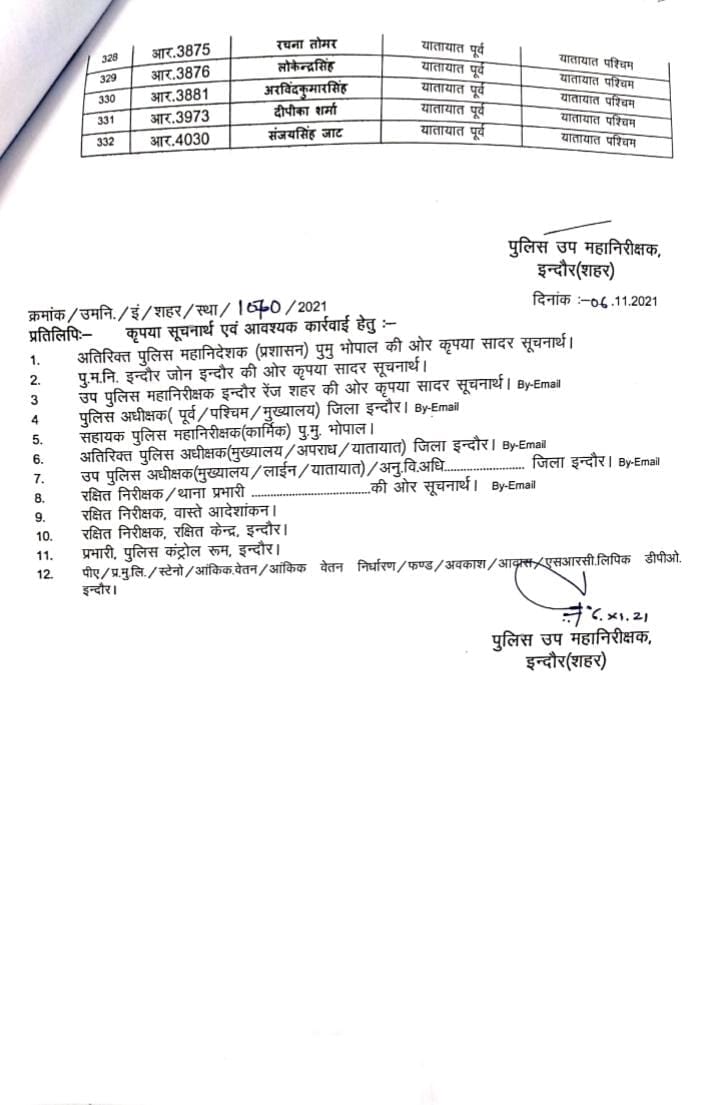 328 आर.3875 रचना तोमर यातायात पूर्व यातायात पश्चिम
329 आर.3876 लोकेन्द्रसिंह यातायात पूर्व यातायात पश्चिम
330 आर.3881 अरविंदकुमारसिंह यातायात पूर्व यातायात पश्चिम
331 आर.3973 दीपीका शर्मा यातायात पूर्व यातायात पश्चिम
332 आर.4030 संजयसिंह जाट यातायात पूर्व यातायात पश्चिम
पुलिस उप महानिरीक्षक,
इन्दौर(शहर)
क्रमांक/उमनि./इं/शहर/स्था/ /2021 दिनांक :–06.11.2021
प्रतिलिपिः– कृपया सूचनार्थ एवं आवश्यक कार्रवाई हेतु :–
1. अतिरिक्त पुलिस महानिदेशक (प्रशासन) पुमु भोपाल की ओर कृपया सादर सूचनार्थ।
2. पु.म.नि. इन्दौर जोन इन्दौर की ओर कृपया सादर सूचनार्थ।
3 उप पुलिस महानिरीक्षक इन्दौर रेंज शहर की ओर कृपया सादर सूचनार्थ। By-Email
4 पुलिस अधीक्षक( पूर्व/पश्चिम/मुख्यालय) जिला इन्दौर। By-Email
5. सहायक पुलिस महानिरीक्षक(कार्मिक) पु.मु. भोपाल।
6. अतिरिक्त पुलिस अधीक्षक(मुख्यालय/अपराध/यातायात) जिला इन्दौर। By-Email
7. उप पुलिस अधीक्षक(मुख्यालय/लाईन/यातायात)/अनु.वि.अधि......................... जिला इन्दौर। By-Email
8. रक्षित निरीक्षक/थाना प्रभारी .....................................की ओर सूचनार्थ। By-Email
9. रक्षित निरीक्षक, वास्ते आदेशांकन।
10. रक्षित निरीक्षक, रक्षित केन्द्र, इन्दौर।
11. प्रभारी, पुलिस कंट्रोल रूम, इन्दौर।
12. पीए/प्र.मु.लि./स्टेनो/आंकिक.वेतन/आंकिक वेतन निर्धारण/फण्ड/अवकाश/आवास/एसआरसी.लिपिक डीपीओ.
इन्दौर।
6.XI.21
पुलिस उप महानिरीक्षक,
इन्दौर(शहर)